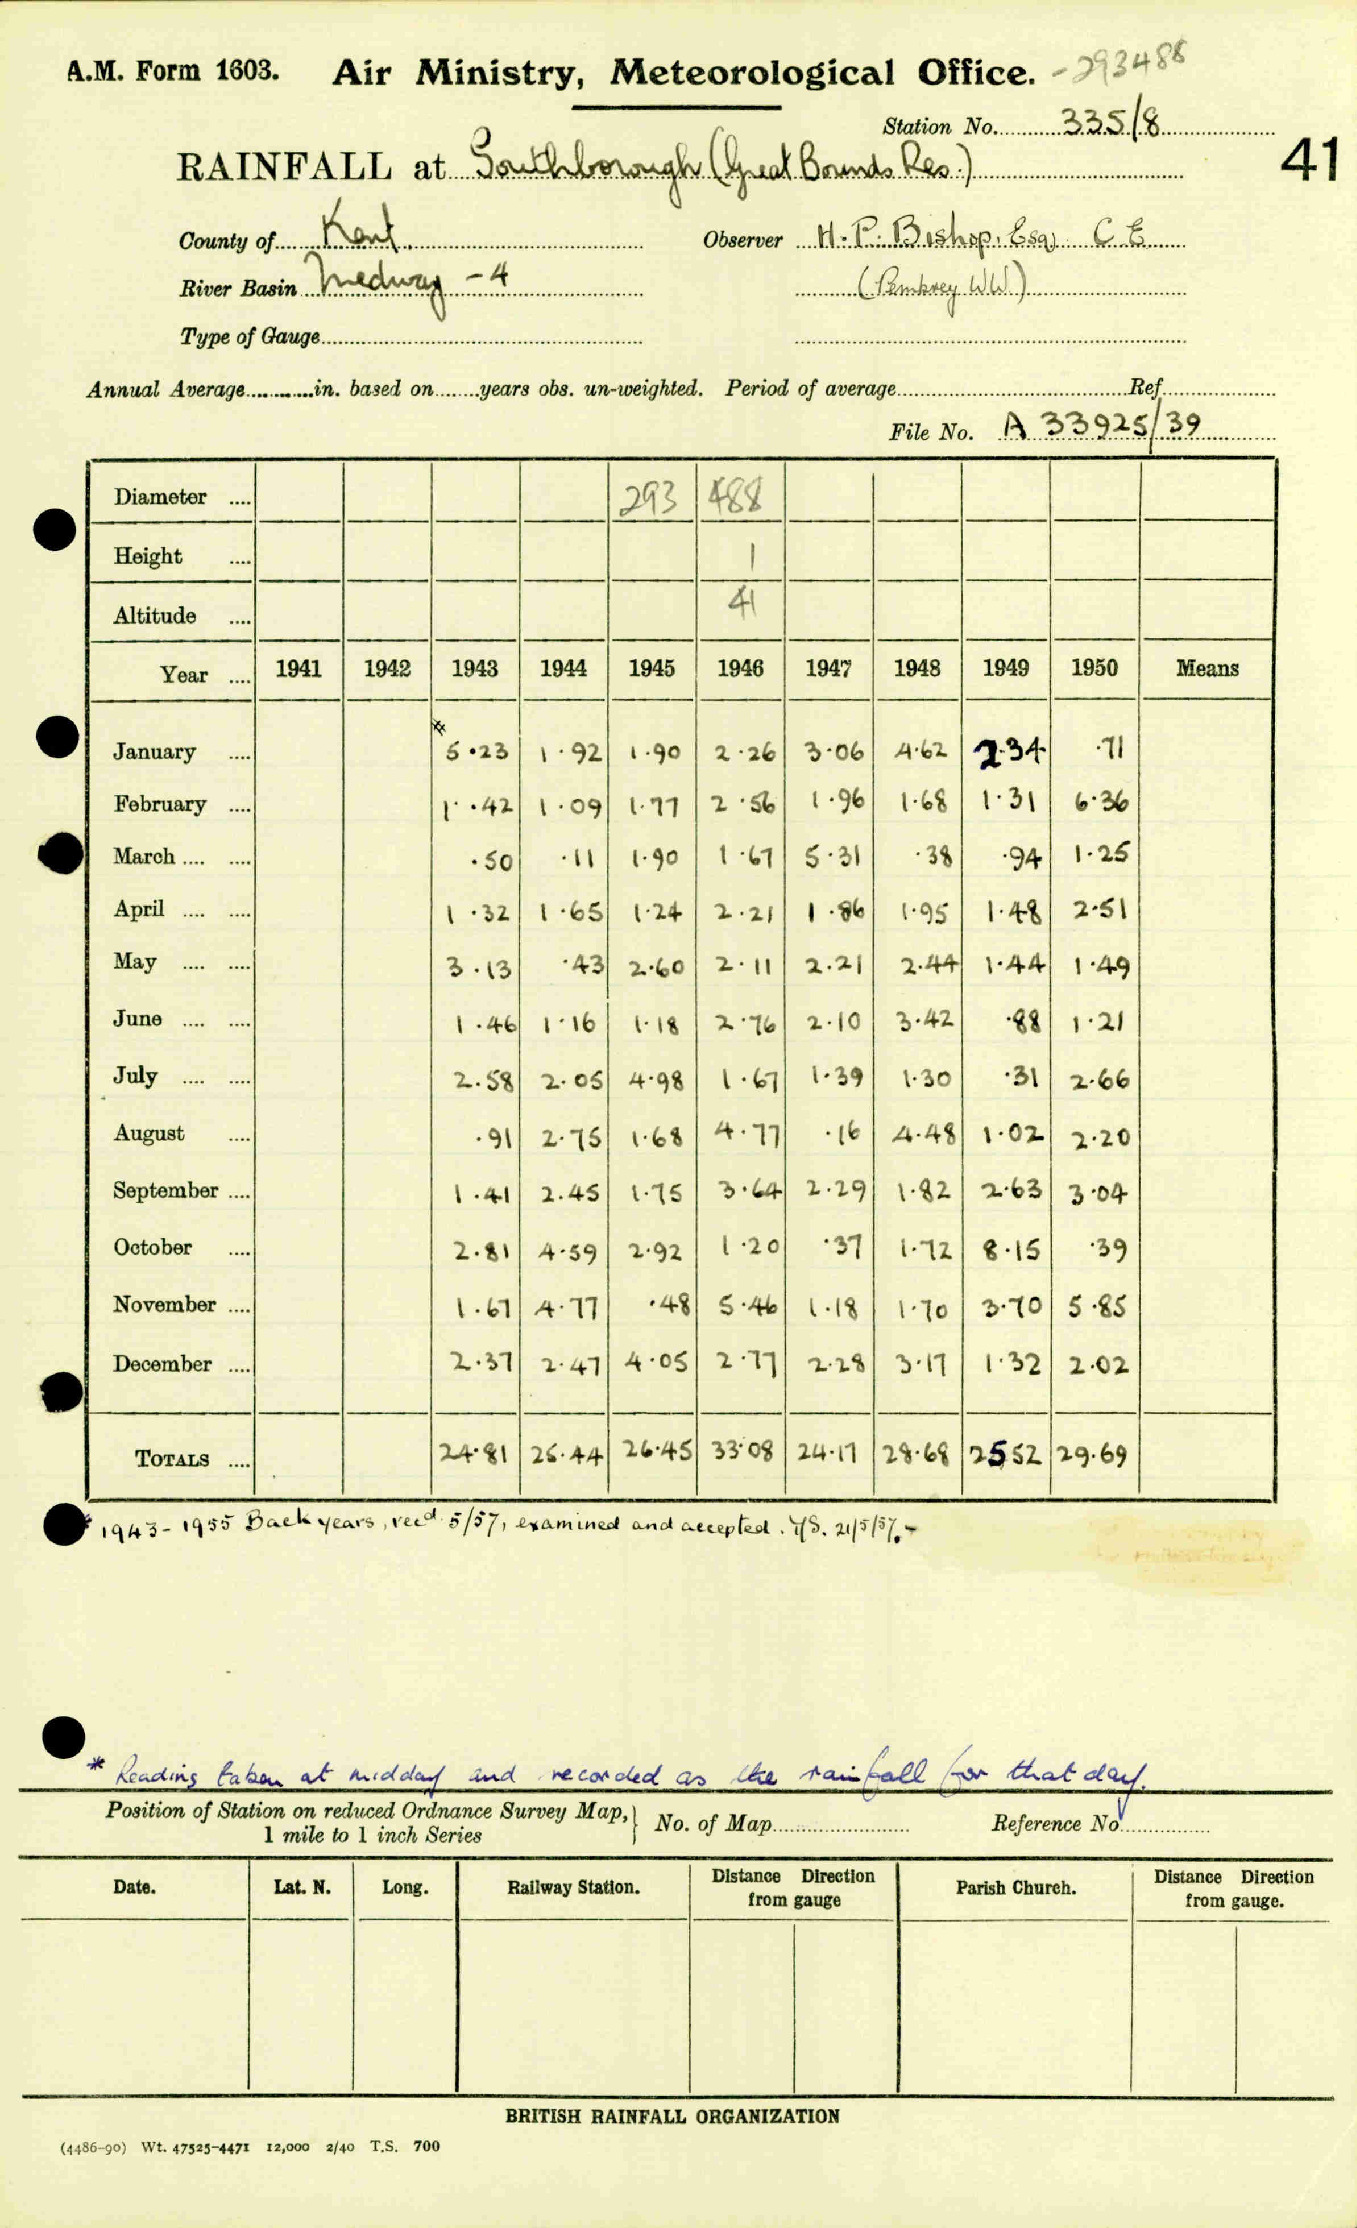 A.M. Form 1603. Air Ministry, Meteorological Office. -293488
Station No. 335/8
41
RAINFALL at Southborough (Great Bounds Res.)
County of Kent. Observer H. P. Bishop, Esq, C E
River Basin Medway - 4 (Pembury WW)
Type of Gauge
Annual Average in. based on years obs. un-weighted. Period of average Ref
File No. A 33925/39
Diameter .... 293 488
Height .... 1
Altitude .... 41
Year .... 1941 1942 1943 1944 1945 1946 1947 1948 1949 1950 Means
January .... 5.23 1.92 1.90 2.26 3.06 4.62 2.34 .71
February .... 1.42 1.09 1.77 2.56 1.96 1.68 1.31 6.36
March .... .... .50 .11 1.90 1.67 5.31 .38 .94 1.25
April .... .... 1.32 1.65 1.24 2.21 1.86 1.95 1.48 2.51
May .... .... 3.13 .43 2.60 2.11 2.21 2.44 1.44 1.49
June .... .... 1.46 1.16 1.18 2.76 2.10 3.42 .88 1.21
July .... .... 2.58 2.05 4.98 1.67 1.39 1.30 .31 2.66
August .... .91 2.75 1.68 4.77 .16 4.48 1.02 2.20
September .... 1.41 2.45 1.75 3.64 2.29 1.82 2.63 3.04
October .... 2.81 4.59 2.92 1.20 .37 1.72 8.15 .39
November .... 1.67 4.77 .48 5.46 1.18 1.70 3.70 5.85
December .... 2.37 2.47 4.05 2.77 2.28 3.17 1.32 2.02
TOTALS .... 24.81 25.44 26.45 33.08 24.17 28.68 25 52 29.69
* 1943 - 1955 Back years, recd 5/57, examined and accepted. 21/5/57.-
* Reading taken at midday and recorded as the rainfall for that day.
Position of Station on reduced Ordnance Survey Map, 1 mile to 1 inch Series } No. of Map Reference No
Date. Lat. N. Long. Railway Station. Distance Direction from gauge Parish Church. Distance Direction from gauge.
BRITISH RAINFALL ORGANIZATION
(4486-90) Wt. 47525-4471 12,000 2/40 T.S. 700